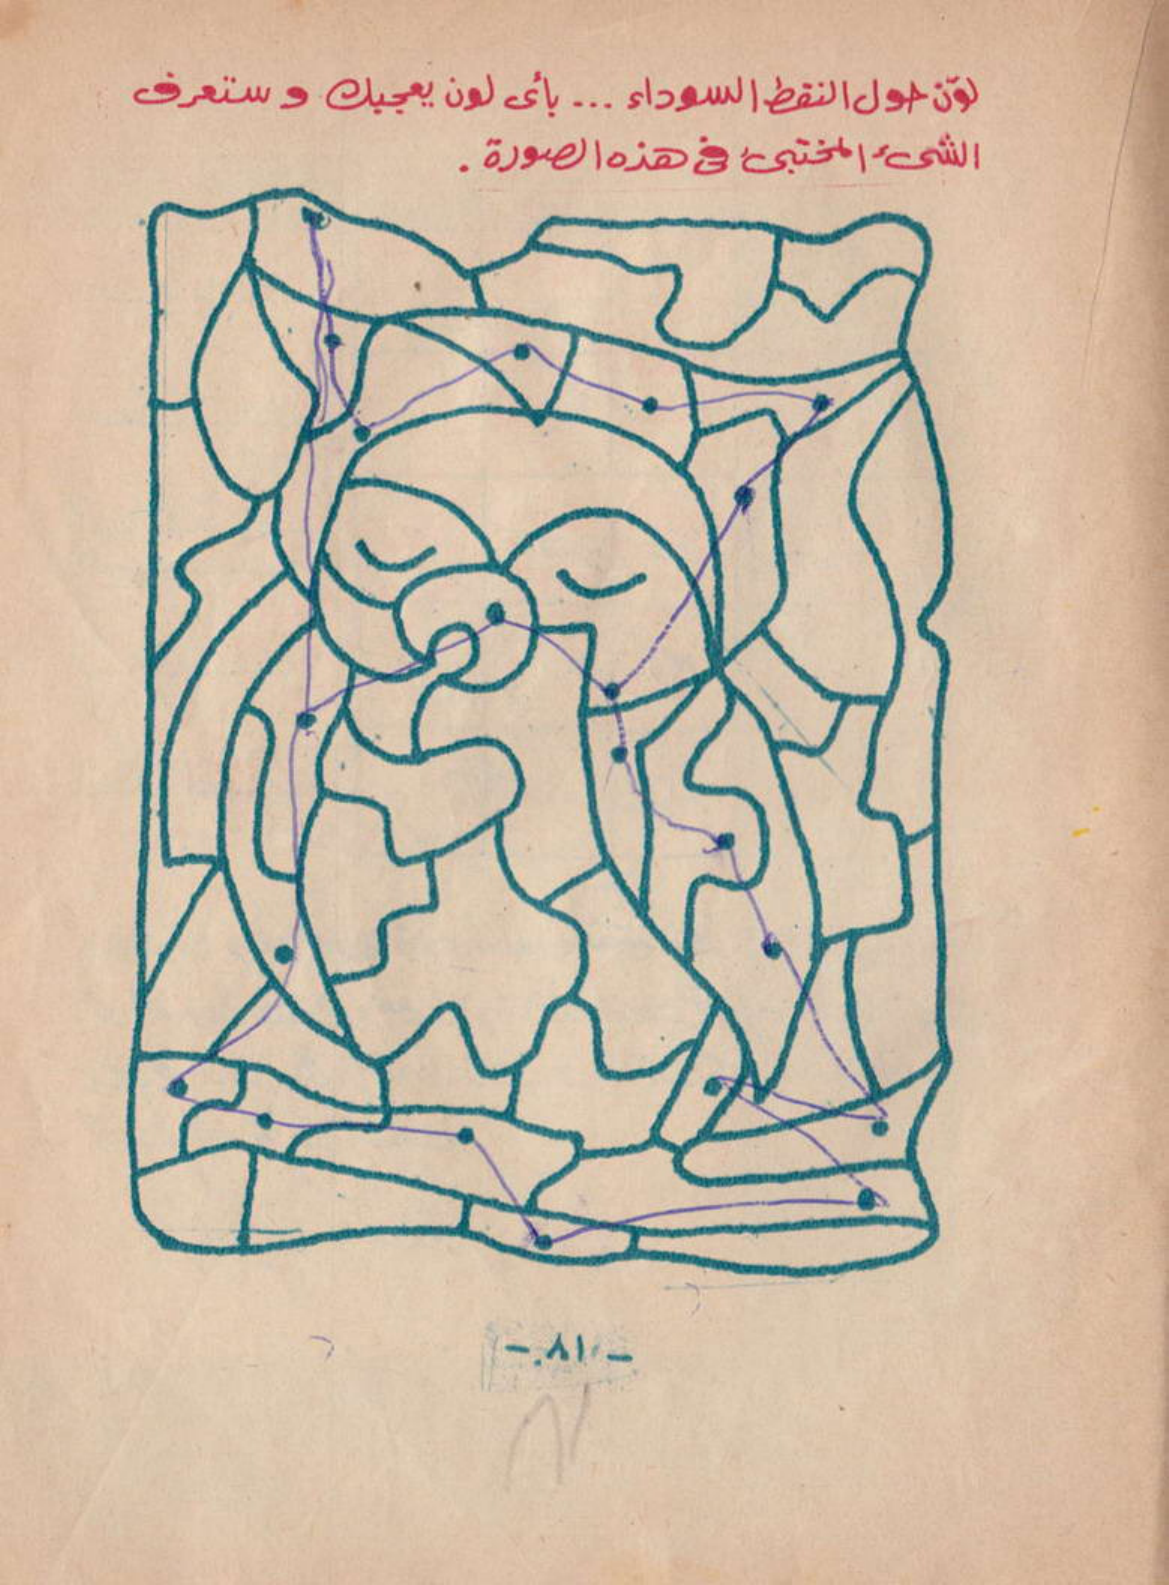 لوّن حول النقط السوداء ... بأى لون يعجبك و ستعرف
الشىء المختبىء فى هذه الصورة .